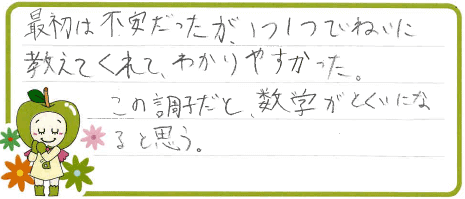 最初は不安だったが、1つ1つていねいに
教えてくれて、わかりやすかった。
この調子だと、数学がとくいにな
ると思う。